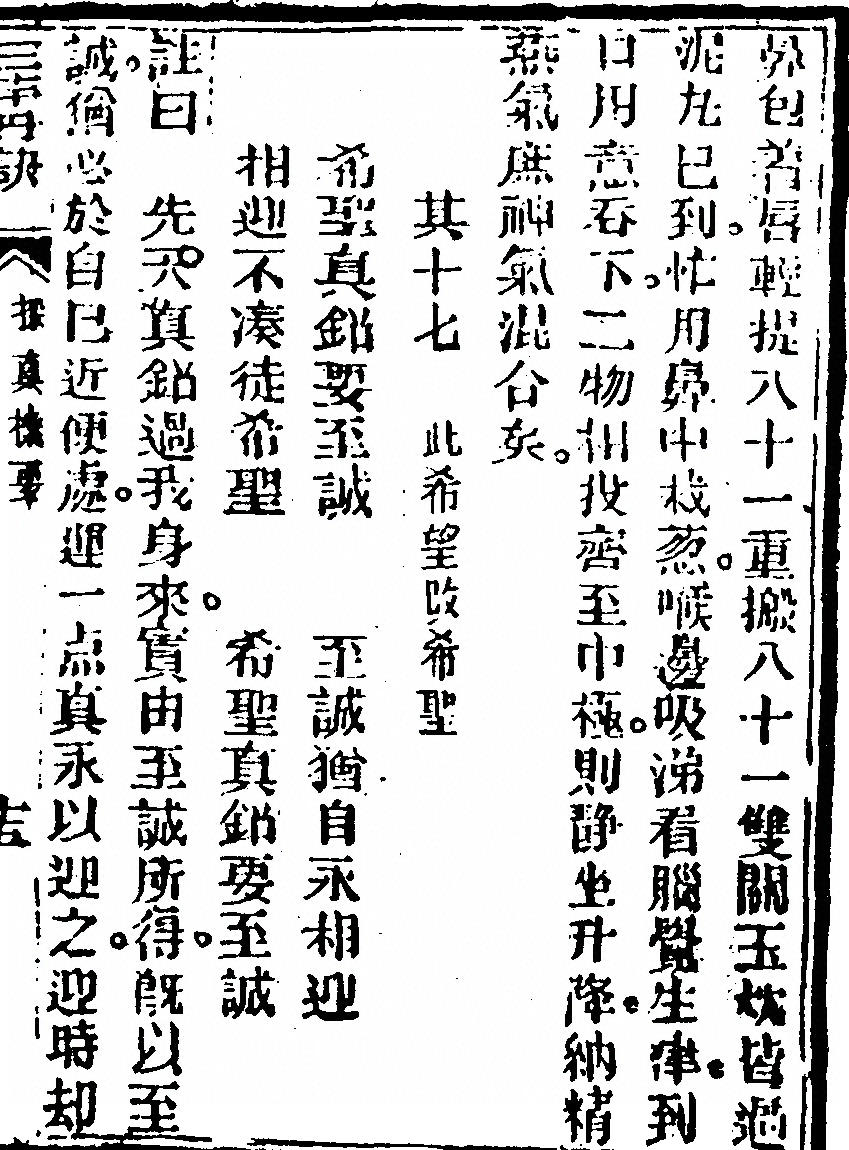 鼻包着唇輕提八十一重搬八十一雙關玉枕皆過
泥丸已到忙用鼻中栽葱喉邊吸涕看腦覺生津到
口用意吞下二物相投齊至中極則靜坐升降納精
燕氣庶神氣混合矣
其十七 此希望改希聖
希聖真鉛要至誠 至誠猶自永相迎
相迎不凑徒希聖 希聖真鉛要至誠
註曰 先天真鉛過我身來實由至誠所得旣以至
誠猶必於自巳近便處迎一点真永以迎之迎時却
三車丹訣 採真機要 吉